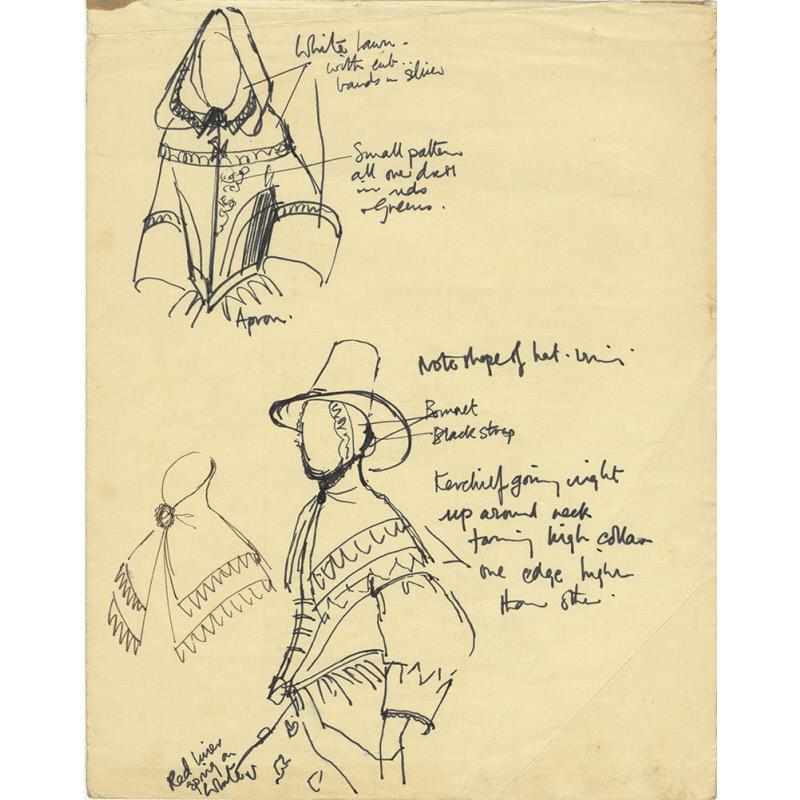 White Lawn -
with emb...
bands in silver
Small pattern
all over dress
in reds
+ Greens.
Apron.
Note shape of hat.
Bonnet
Black strap
Kerchief going right
up around neck
forming high collar
one edge higher
than other.
Red
sprig on
White